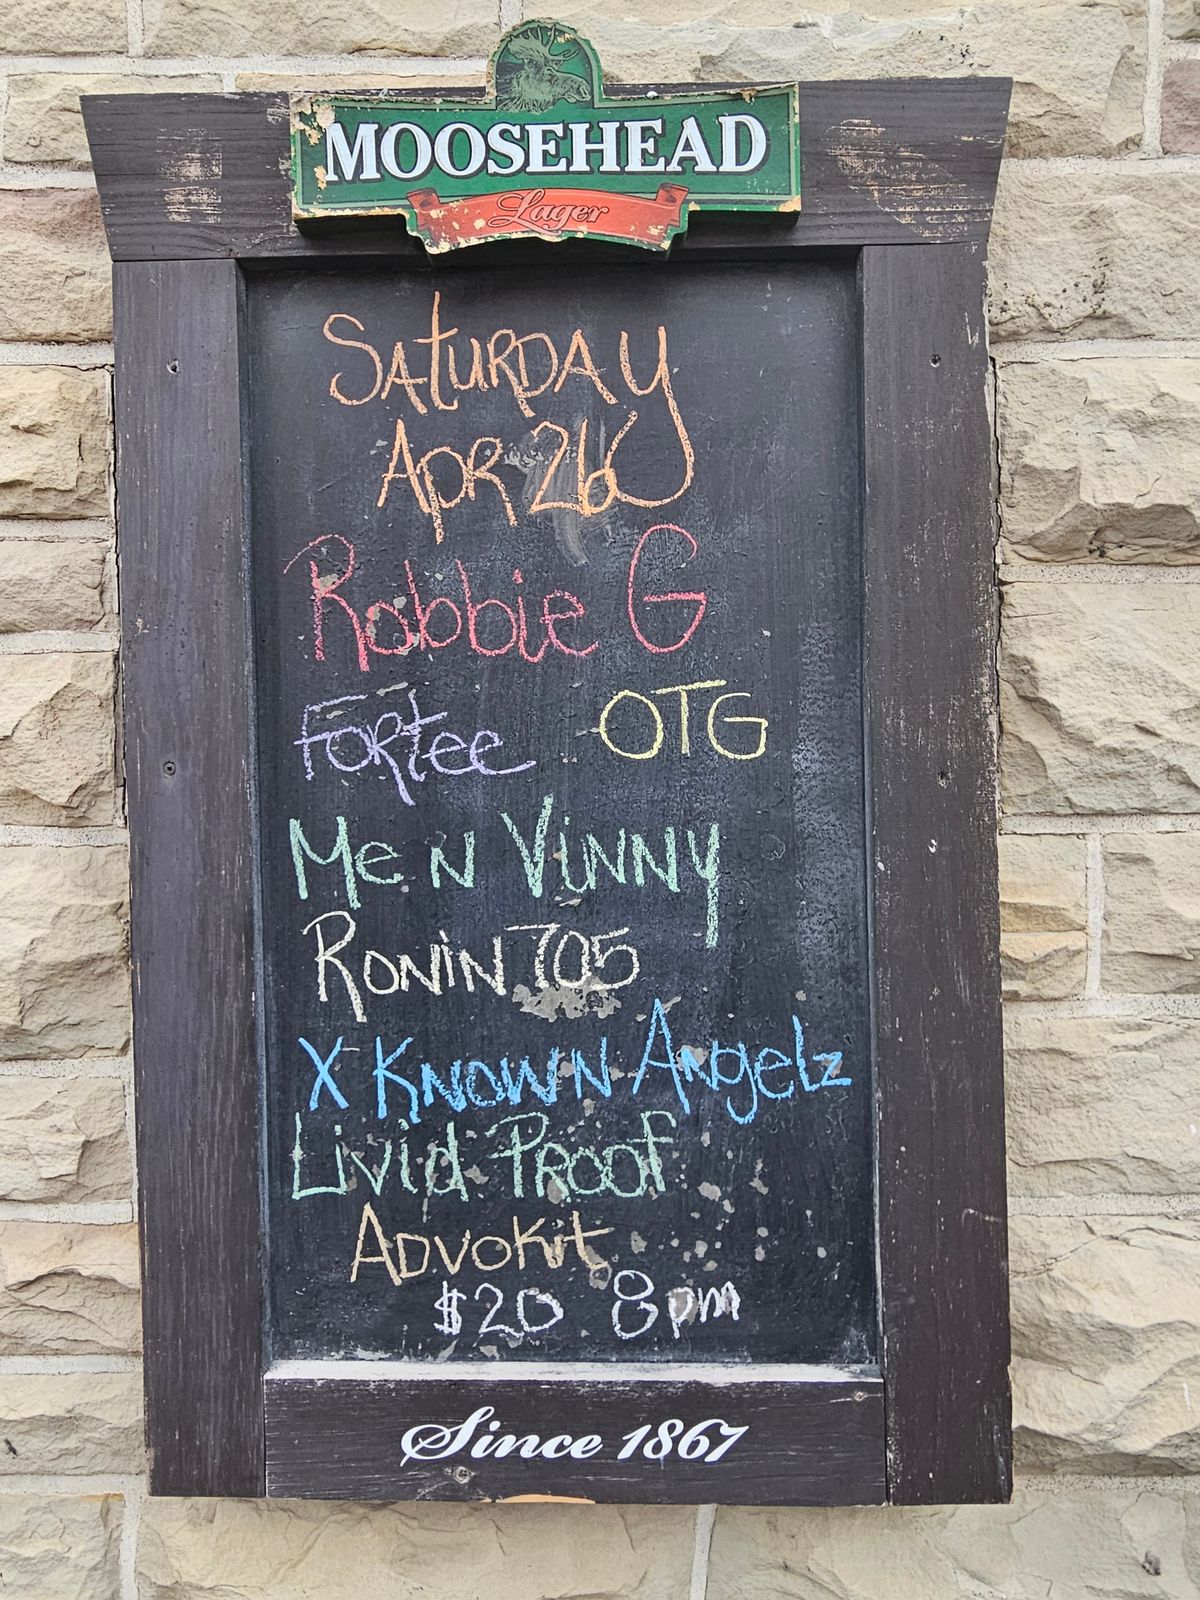 MOOSEHEAD
Lager
SATURDAY
APR 26
Robbie G
FORTEE OTG
Me N VINNY
RONIN 705
X KNOWN Angelz
Livid PROOF
ADVOKIT
$20 8pm
Since 1867